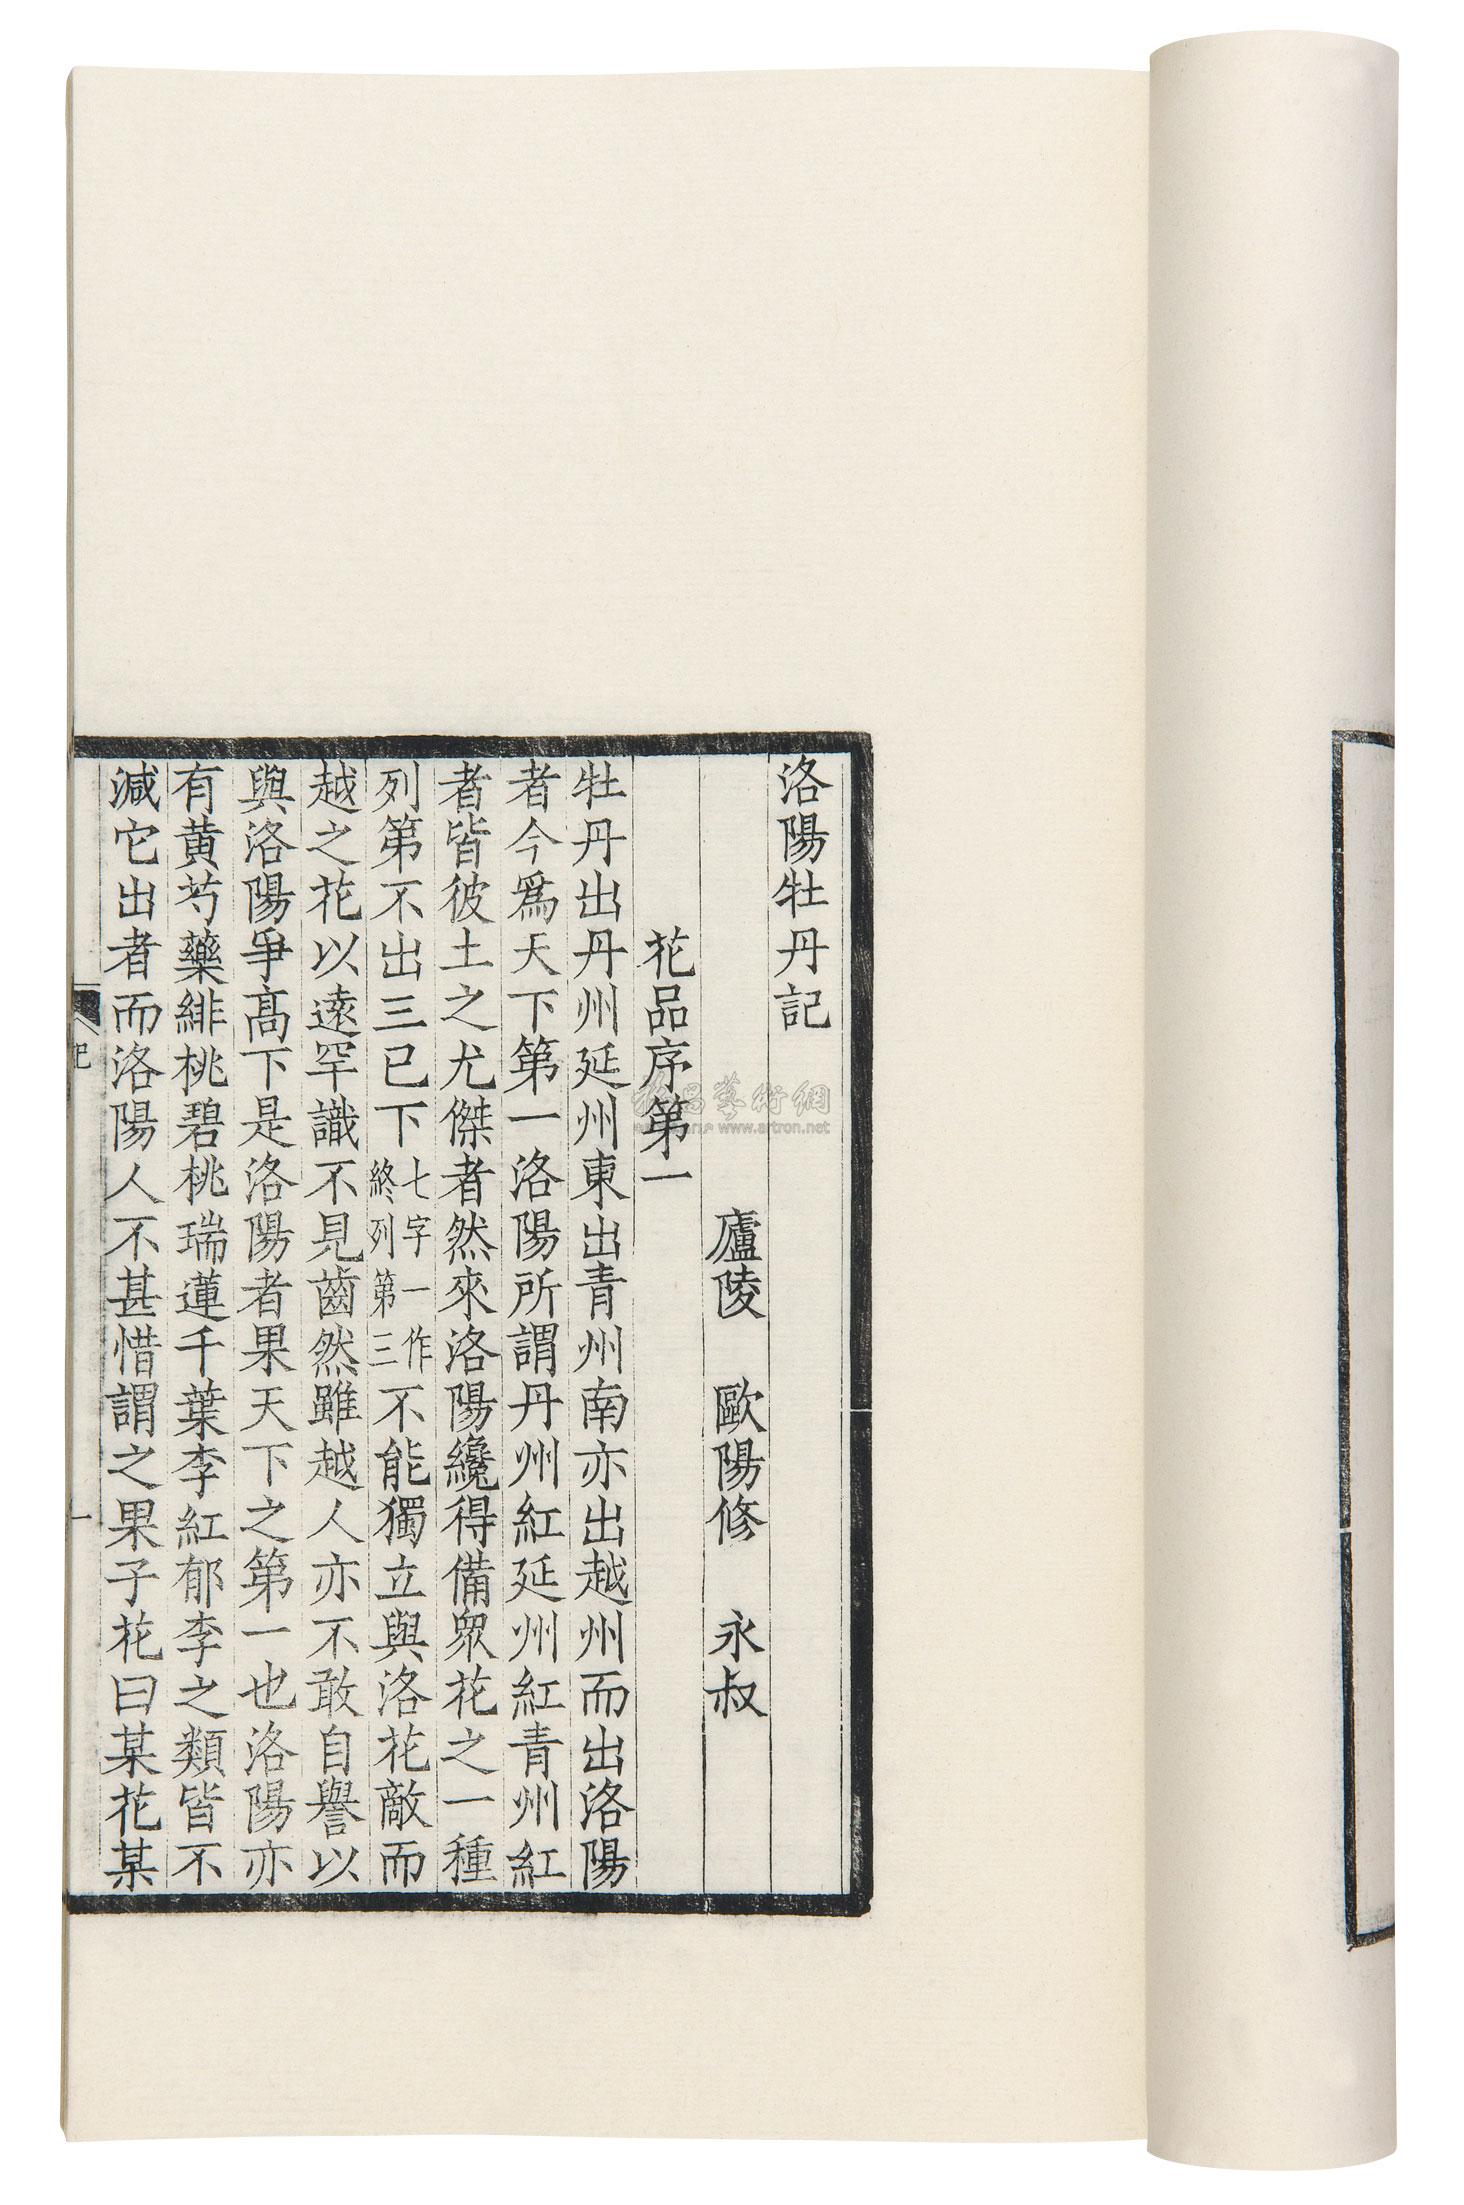 洛陽牡丹記
廬陵 歐陽修 永叔
花品序第一
牡丹出丹州延州東出青州南亦出越州而出洛陽
者今爲天下第一洛陽所謂丹州紅延州紅青州紅
者皆彼土之尤傑者然來洛陽纔得備眾花之一種
列第不出三已下七字一作終列第三不能獨立與洛花敵而
越之花以遠罕識不見齒然雖越人亦不敢自譽以
與洛陽爭高下是洛陽者果天下之第一也洛陽亦
有黄芍藥緋桃碧桃瑞蓮千葉李紅郁李之類皆不
減它出者而洛陽人不甚惜謂之果子花曰某花某
一
藝術網
www.artron.net